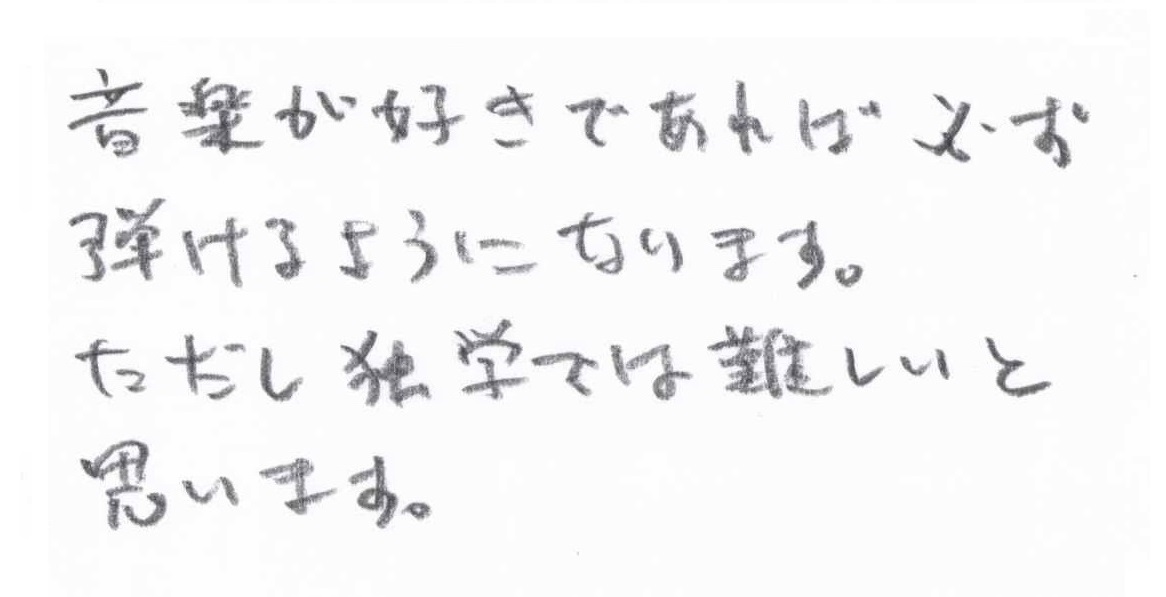 音楽が好きであれば必ず
弾けるようになります。
ただし独学では難しいと
思います。